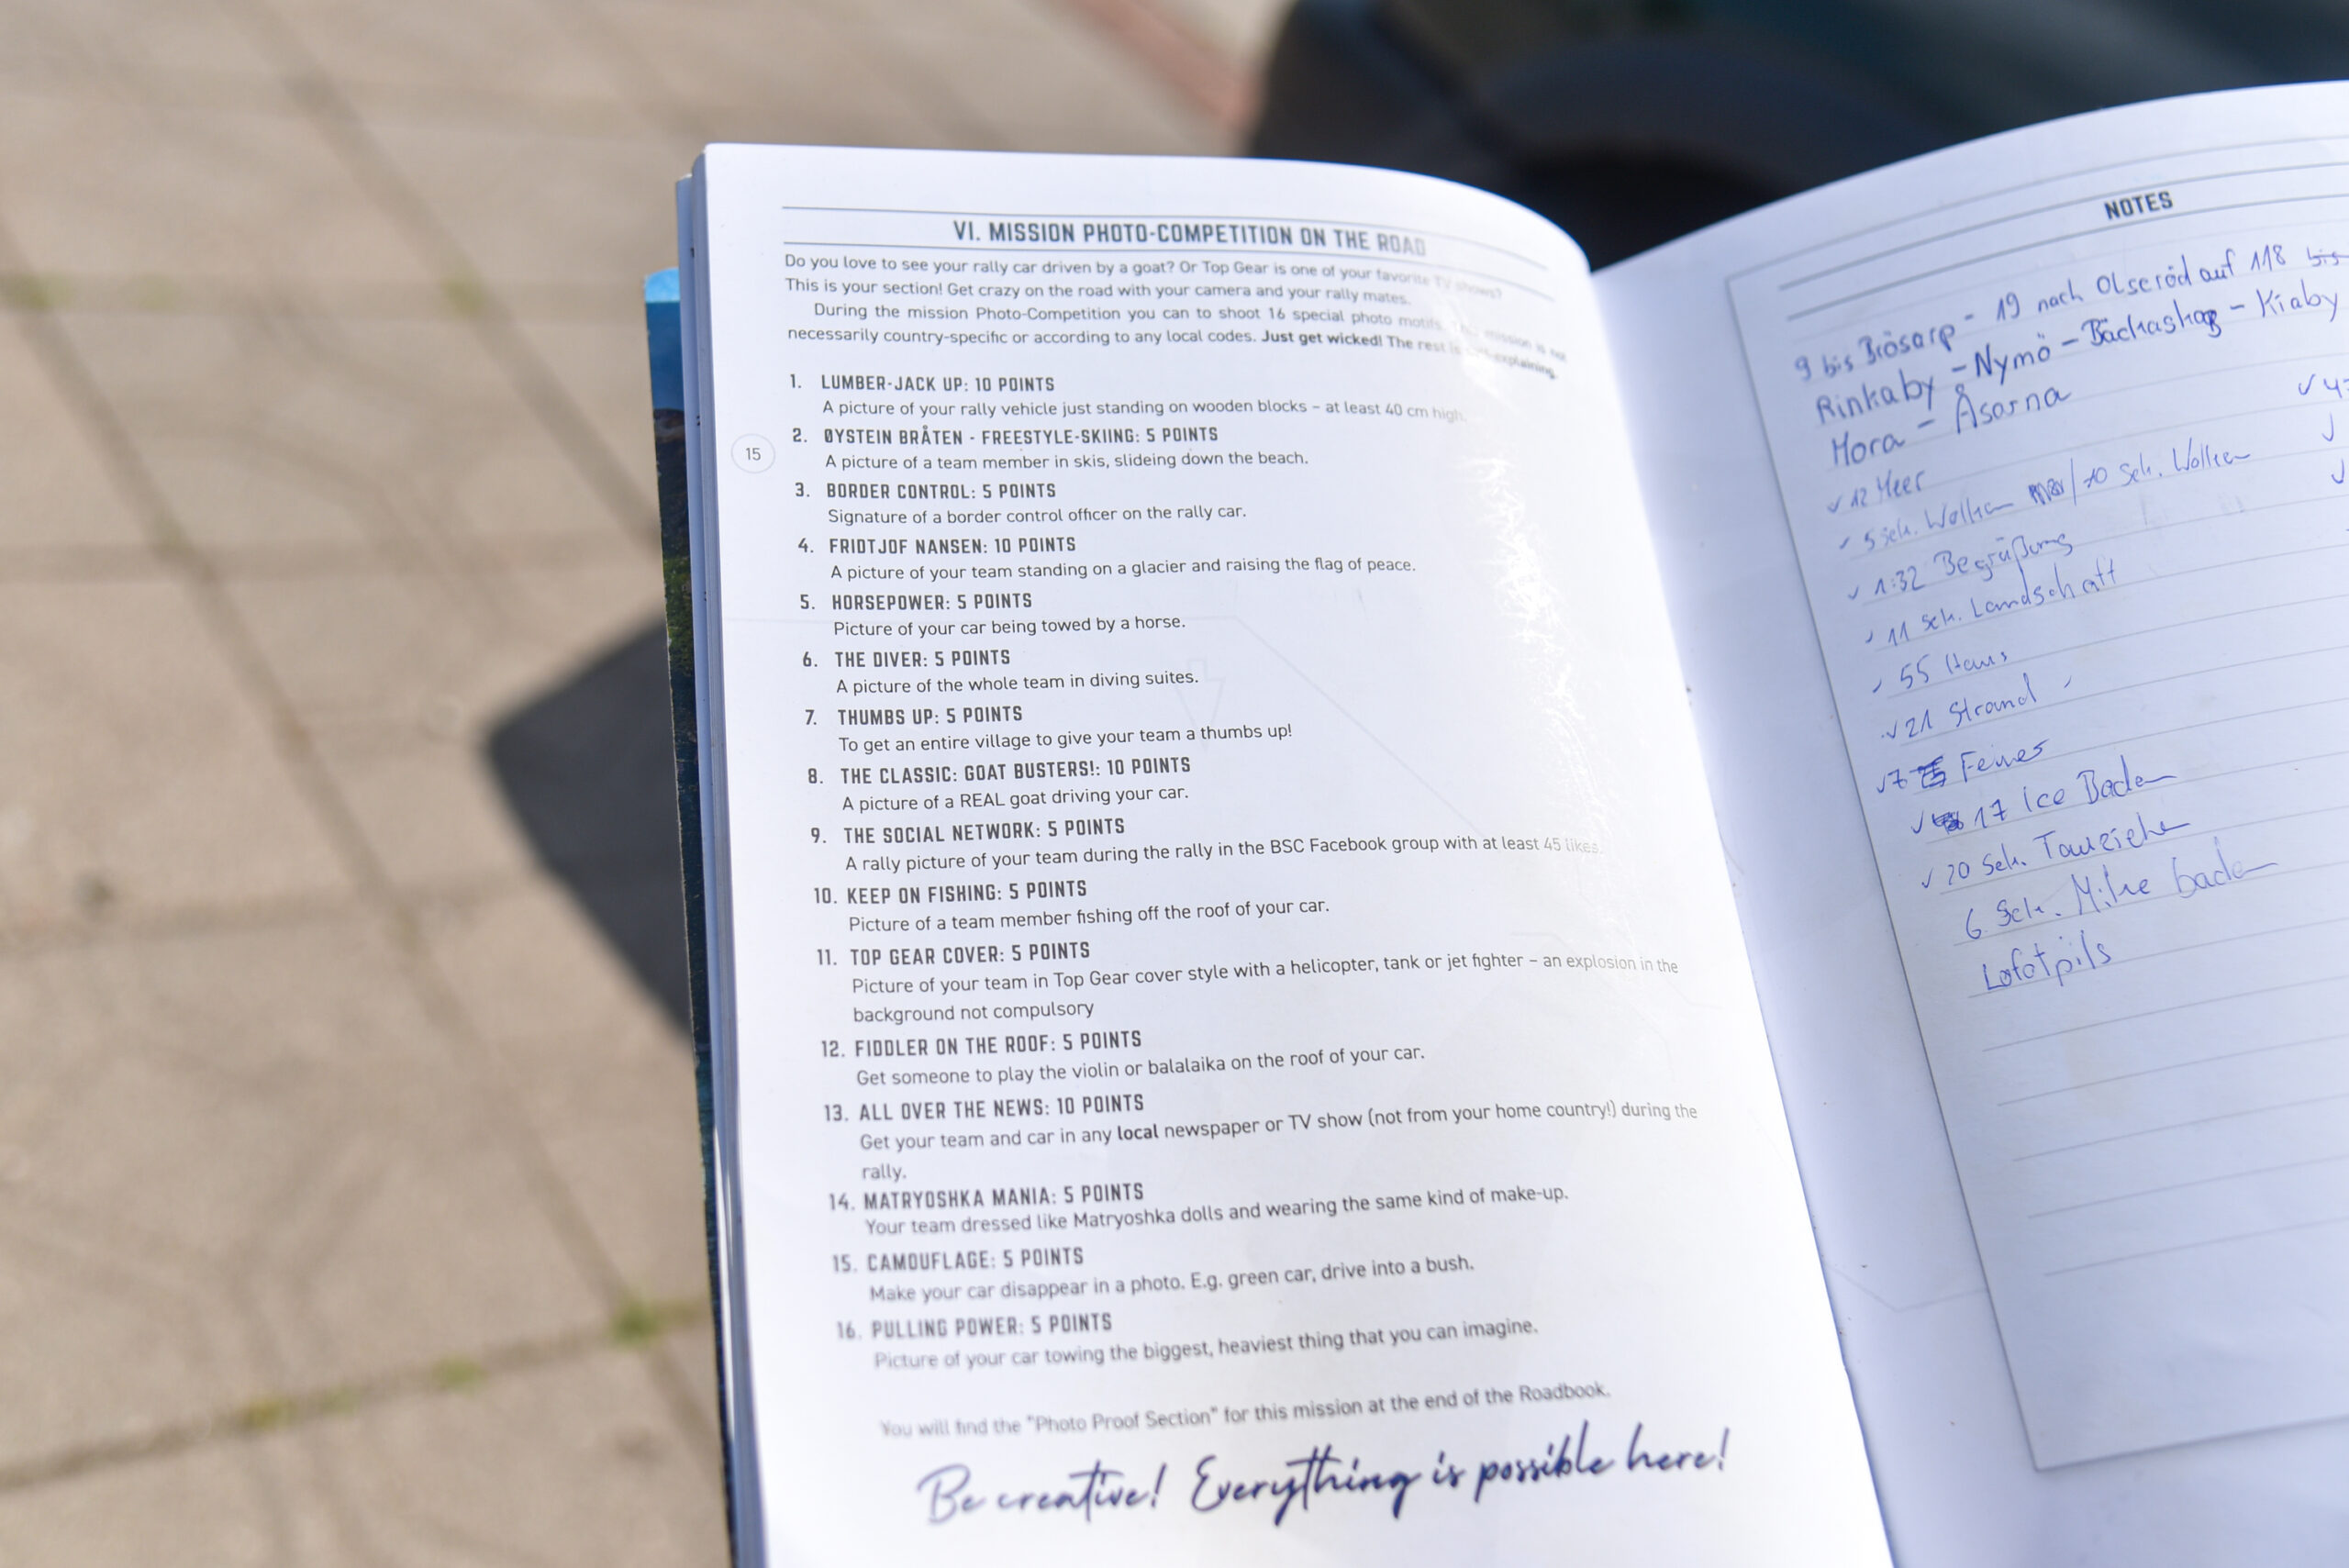 VI. MISSION PHOTO-COMPETITION ON THE ROAD
Do you love to see your rally car driven by a goat? Or Top Gear is one of your favorite TV shows?
This is your section! Get crazy on the road with your camera and your rally mates.
During the mission Photo-Competition you can to shoot 16 special photo motifs. This mission is not
necessarily country-specific or according to any local codes. Just get wicked! The rest is self-explaining.
1. LUMBER-JACK UP: 10 POINTS
A picture of your rally vehicle just standing on wooden blocks – at least 40 cm high.
2. ØYSTEIN BRÅTEN - FREESTYLE-SKIING: 5 POINTS
A picture of a team member in skis, slideing down the beach.
3. BORDER CONTROL: 5 POINTS
Signature of a border control officer on the rally car.
4. FRIDTJOF NANSEN: 10 POINTS
A picture of your team standing on a glacier and raising the flag of peace.
5. HORSEPOWER: 5 POINTS
Picture of your car being towed by a horse.
6. THE DIVER: 5 POINTS
A picture of the whole team in diving suites.
7. THUMBS UP: 5 POINTS
To get an entire village to give your team a thumbs up!
8. THE CLASSIC: GOAT BUSTERS!: 10 POINTS
A picture of a REAL goat driving your car.
9. THE SOCIAL NETWORK: 5 POINTS
A rally picture of your team during the rally in the BSC Facebook group with at least 45 likes.
10. KEEP ON FISHING: 5 POINTS
Picture of a team member fishing off the roof of your car.
11. TOP GEAR COVER: 5 POINTS
Picture of your team in Top Gear cover style with a helicopter, tank or jet fighter – an explosion in the
background not compulsory
12. FIDDLER ON THE ROOF: 5 POINTS
Get someone to play the violin or balalaika on the roof of your car.
13. ALL OVER THE NEWS: 10 POINTS
Get your team and car in any local newspaper or TV show (not from your home country!) during the
rally.
14. MATRYOSHKA MANIA: 5 POINTS
Your team dressed like Matryoshka dolls and wearing the same kind of make-up.
15. CAMOUFLAGE: 5 POINTS
Make your car disappear in a photo. E.g. green car, drive into a bush.
16. PULLING POWER: 5 POINTS
Picture of your car towing the biggest, heaviest thing that you can imagine.
You will find the "Photo Proof Section" for this mission at the end of the Roadbook.
Be creative! Everything is possible here!
15
NOTES
9 bis Brösarp - 19 nach Olseröd auf 118 bis
Rinkaby - Nymö - Bäckaskog - Kiaby
Mora - Åsarna
✓ 12 Meer
✓ 5 sek. Wolken /10 Sek. Wolken
✓ 1:32 Begrüßung
✓ 11 Sek. Landschaft
✓ 55 Haus
✓ 21 Strand
✓ 7 Feuer
✓ 17 Ice Baden
✓ 20 Sek. Tauziehen
6 Sek. Mike baden
Lofotpils